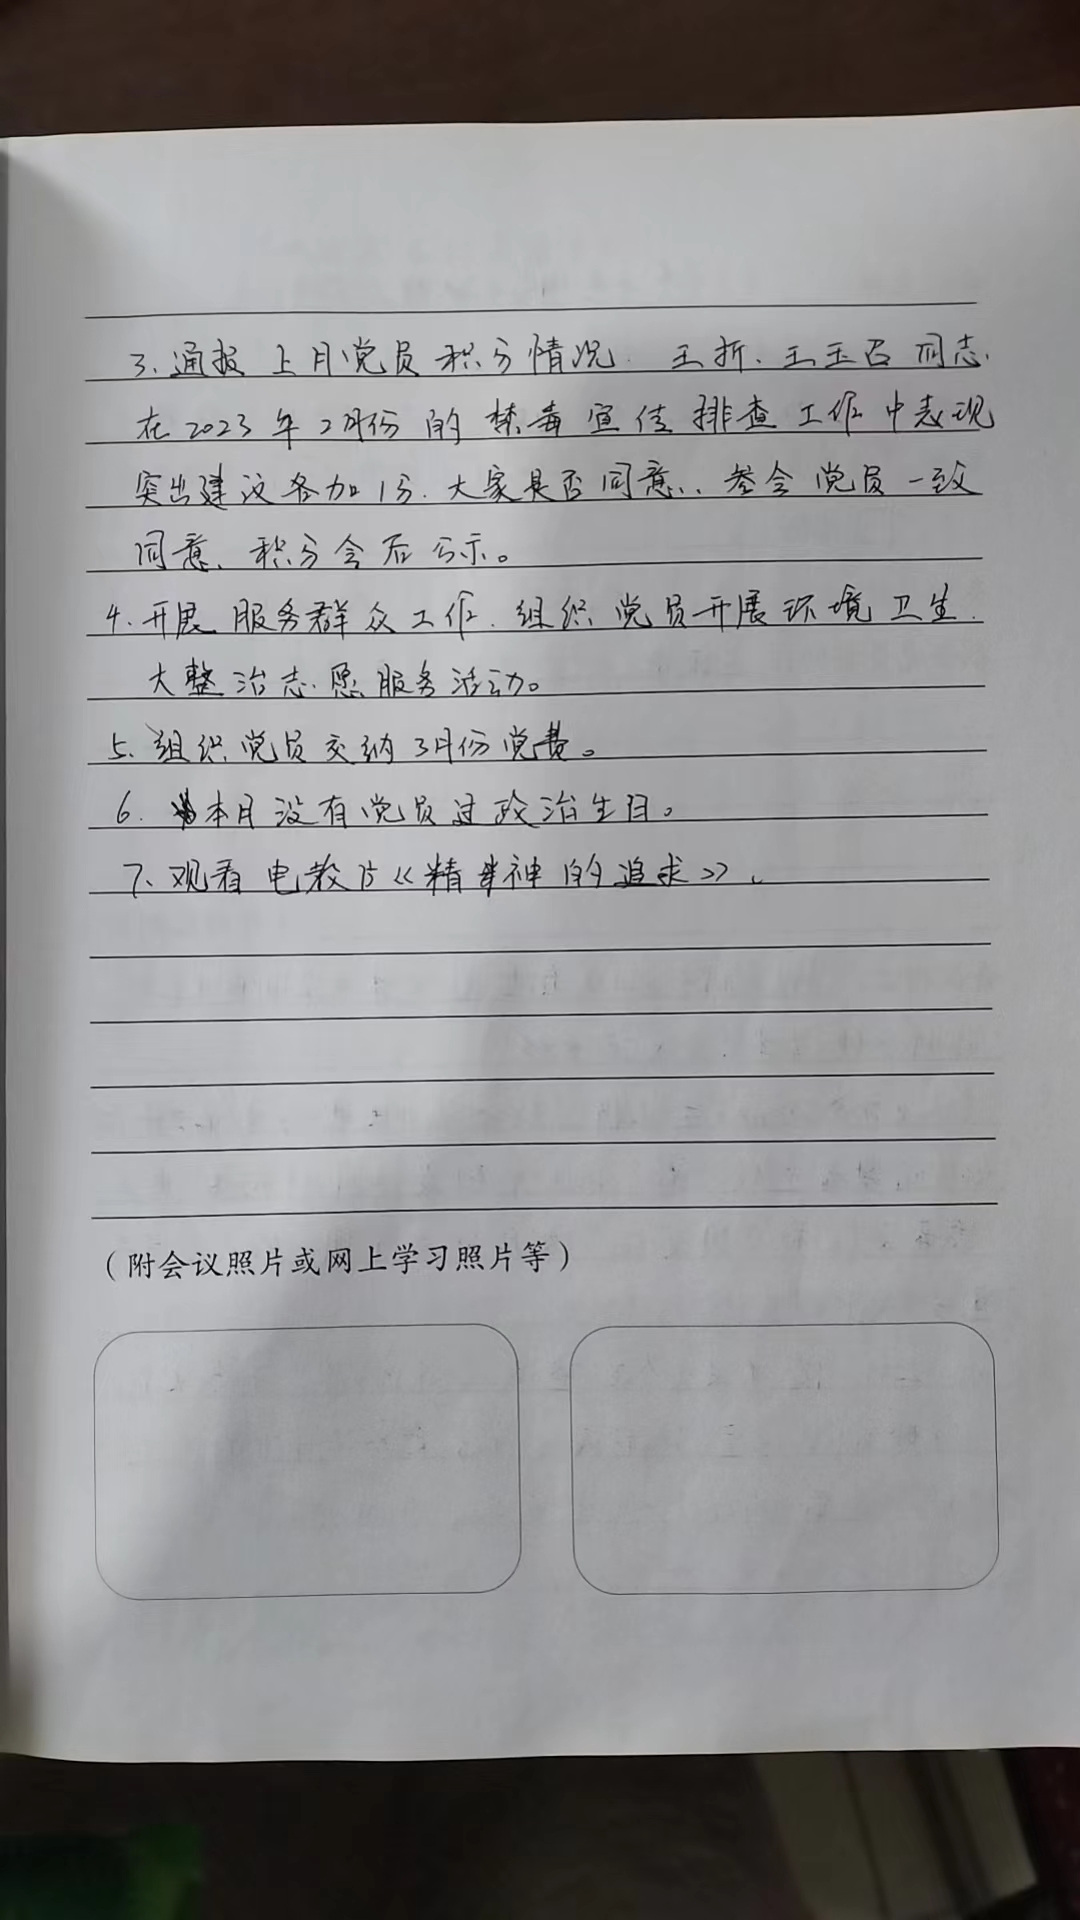 3、通报上月党员积分情况. 王折、王玉召同志、
在2023年2月份的禁毒宣传排查工作中表现
突出建议各加1分.大家是否同意、参会党员一致
同意、积分会后公示。
4、开展服务群众工作.组织党员开展环境卫生
大整治志愿服务活动。
5、组织党员交纳3月份党费。
6、本月没有党员过政治生日。
7、观看电教片《精神的追求》、
（附会议照片或网上学习照片等）